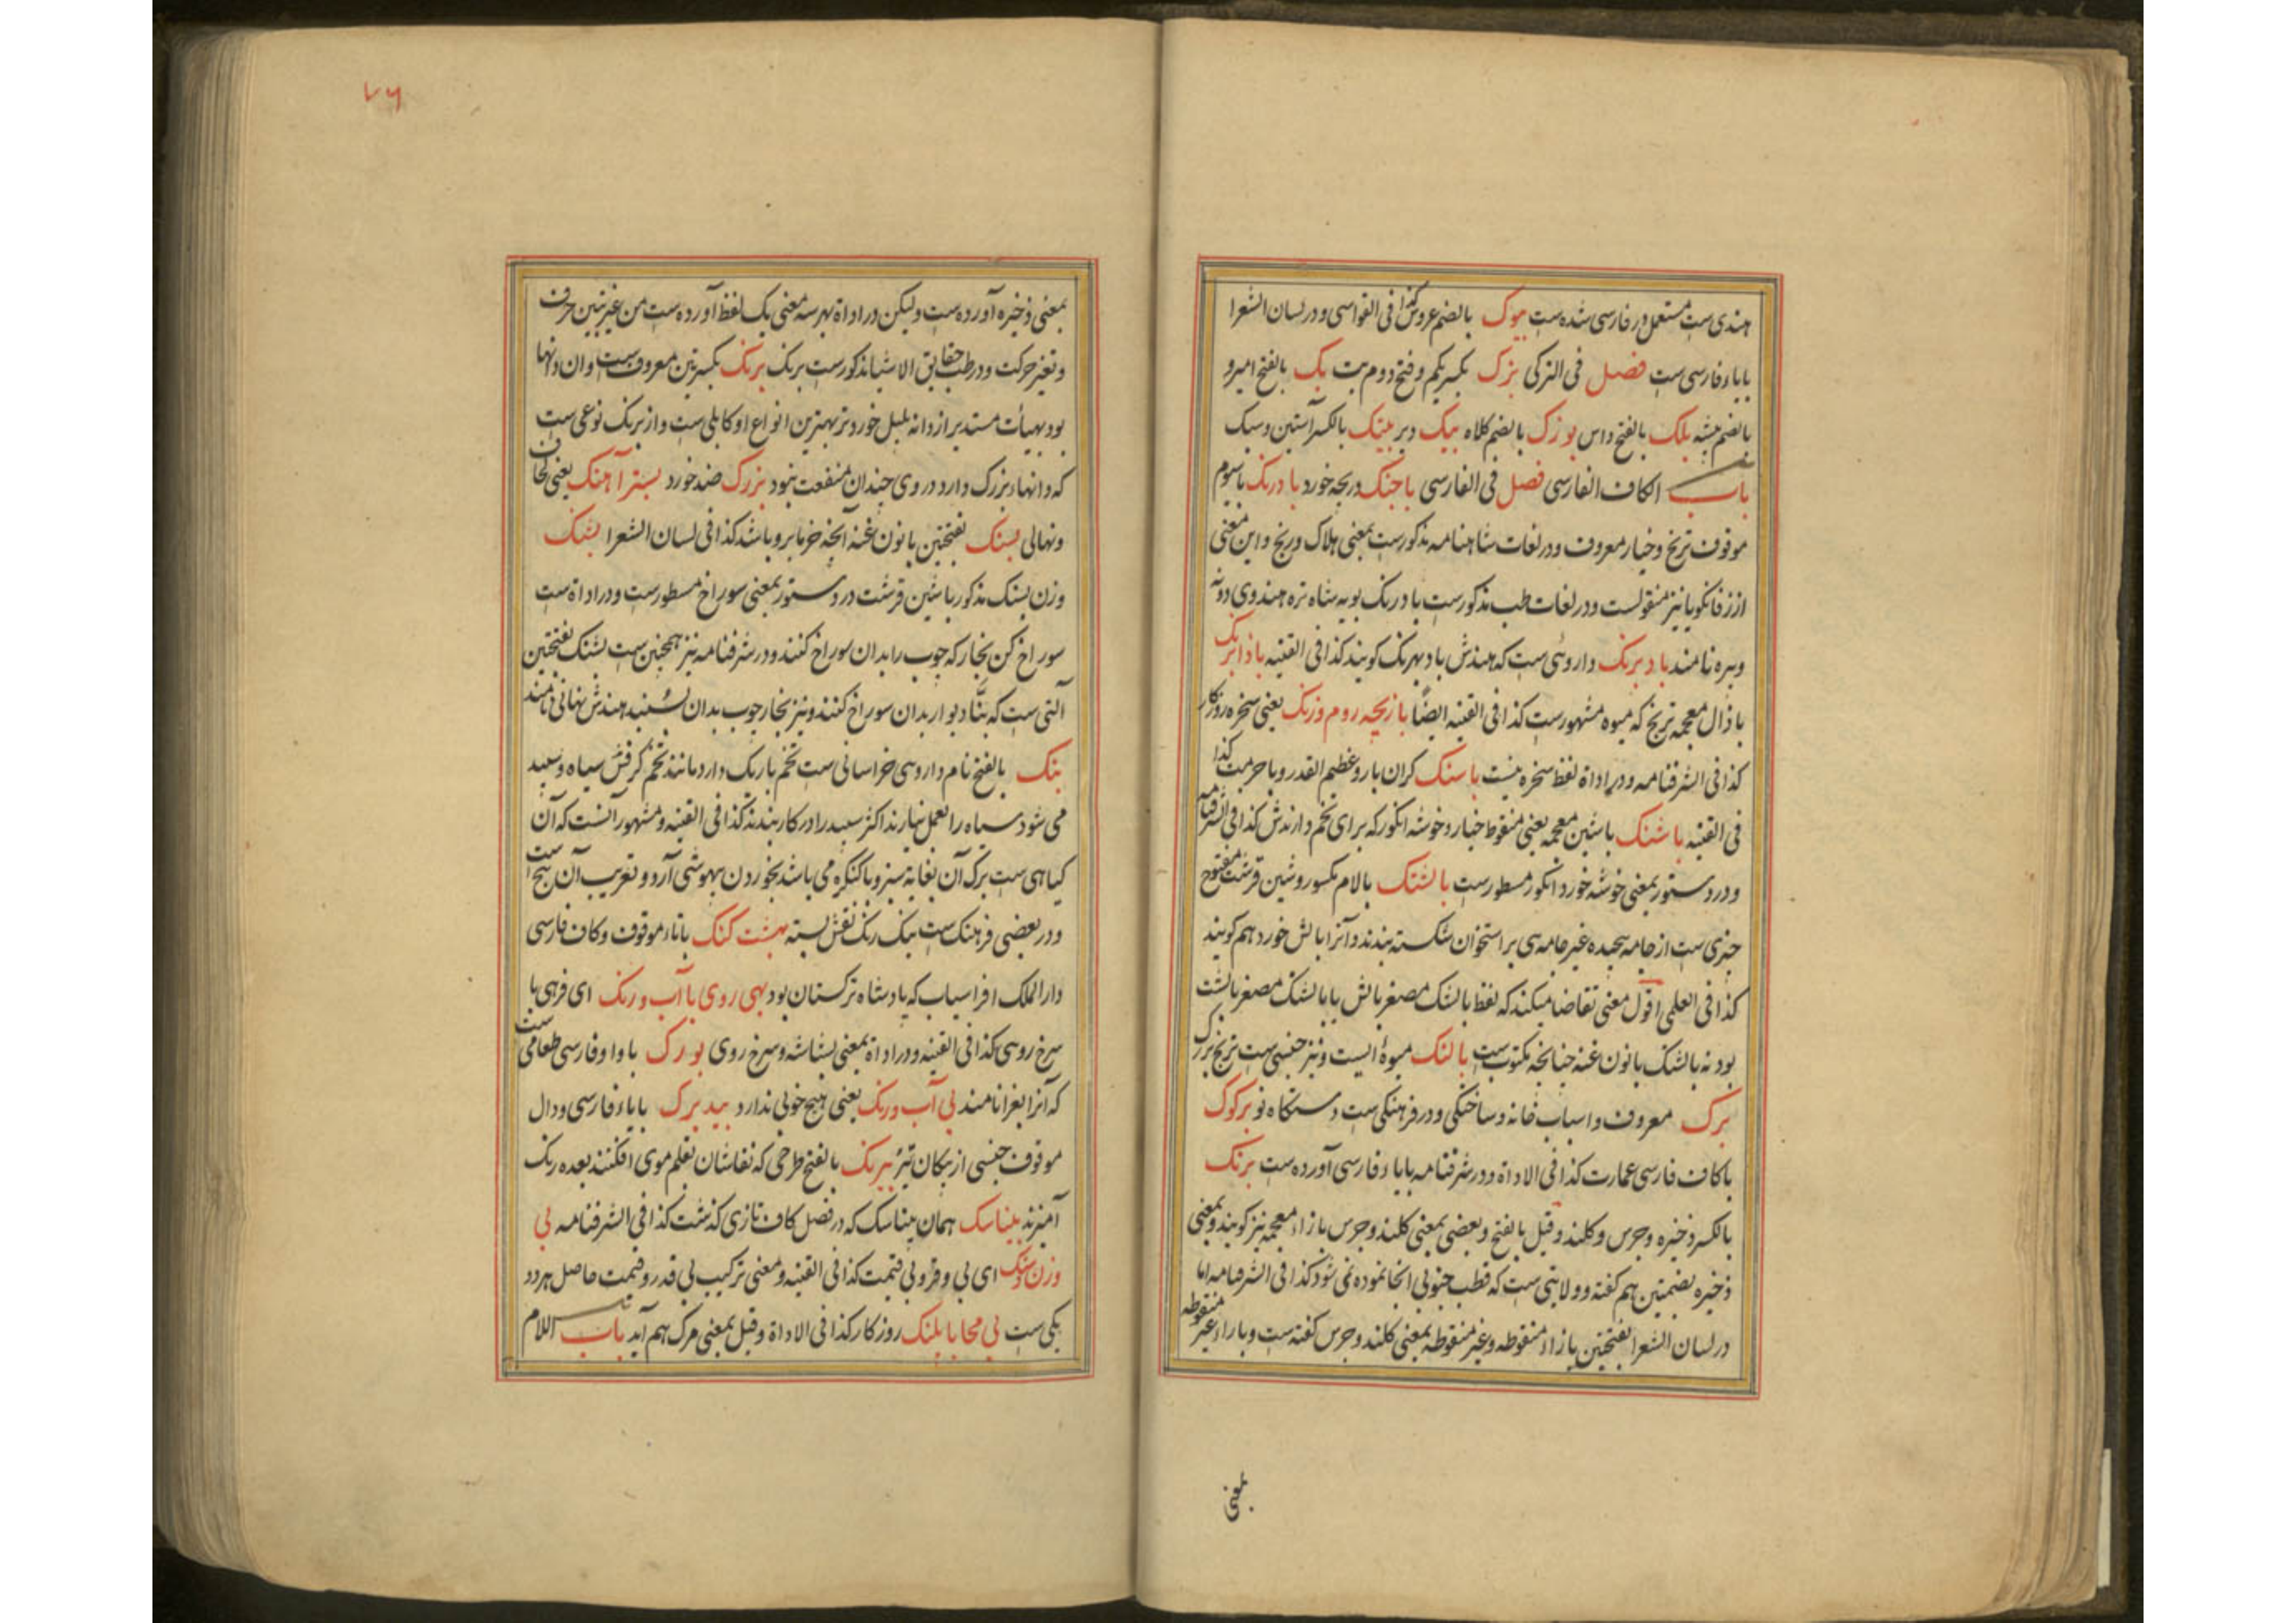 هندی ست مستعمل در فارسی شده ست بیوک بالضم عروس کذا فی القواسی و در لسان الشعرا
بابا فارسی ست فصل فی الترکی بزک بکسر یکم و فتح دوم بت بک بالفتح امیر و
بالضم بیشه بلک بالفتح داس بوزک بالضم کلاه بیک و بر بیتک بالکسر آستین و سبک
باب الکاف الفارسی فصل فی الفارسی باجنک دریچه خورد بادرنک با سیوم
موقوف ترنج و خیار معروف و در لغات شاهنامه مذکورست بمعنی هلاک و رنج و این معنی
از زفانکویا نیز منقولست و در لغات طب مذکورست بادرنک بویه شاه تره هندوی دونه
و بره نامند بادبرنک داروئی ست که هندش باد بهرنک کویند کذا فی القنیه باذابرنک
با ذال معجمه ترنج که میوه مشهورست کذا فی القنیه ایضًا بازیچه روم و زنک یعنی سخره روزکار
کذا فی الشرفنامه و در اداة لفظ سخره نیست باسنک کران بار و عظیم القدر و با حرمت کذا
فی القنیه باشنک با شین معجمه یعنی منقوط خیار و خوشه انکور که برای تخم دارندش کذا فی الشرفنامه
و در دستور بمعنی خوشه خورد انکور مسطورست بالشتک بالام مکسور و شین قرشت مفتوح
چیزی ست از جامه پیچیده غیر جامه می بر استخوان شکسته بندند و آنرا بالش خورد هم کویند
کذا فی العلمی اقول معنی تقاضا میکند که لفظ بالشک مصغر بالش یا بالشتک مصغر بالشت
بود نه بالشنک با نون غنه چنانچه مکتوب ست بالنک میوهٔ ایست و نیز جنسی ست ترنج بزرک
برک معروف و اسباب خانه و ساختگی و در فرهنکی ست دستکاه نو برکوک
با کاف فارسی عمارت کذا فی الاداة و در شرفنامه بابا فارسی آورده ست برنک
بالکسر ذخیره و جرس و کلند و قیل بالفتح و بعضی بمعنی کلند و جرس بازاء معجمه نیز کویند و بمعنی
ذخیره بضمتین هم کفته و ولایتی ست که قطب جنوبی انجا نموده نمی شود کذا فی الشرفنامه اما
در لسان الشعرا بفتحتین بازاء منقوطه و غیر منقوطه بمعنی کلند و جرس کفته ست و با راء غیر منقوطه
بمعنی
۷۶
بمعنی ذخیره آورده ست ولیکن در اداة بهر سه معنی یک لفظ آورده ست من غیر تبین حرف
و تغیر حرکت و در طب حقایق الاشیا مذکورست برنک برنک بکسرتین معروف ست و ان دانها
بود بهیأت مستدیر از دانه بلبل خوردتر بهترین انواع او کابلی ست و از برنک نوعی ست
که دانهاء بزرک دارد در وی چندان منفعت نبود بزرک ضد خورد بسترآهنک یعنی لحاف
و نهالی بسنک بفتحتین با نون غنه آنچه خرما برو باشد کذا فی لسان الشعرا بشنک
وزن بسنک مذکور با شین قرشت در دستور بمعنی سوراخ مسطورست و در اداة ست
سوراخ کن نجار که چوب را بدان سوراخ کنند و در شرفنامه نیز همچنین ست بشنک بفتحتین
آلتی ست که بنّا دیوار بدان سوراخ کنند و نیز نجار چوب بدان سنبد هندش نهانی نامند
بنک بالفتح نام داروی خراسانی ست تخم باریک دارد مانند تخم کرفش سیاه و سپید
می شود سیاه را بعمل نیارند اکثر سپید را در کار بندند کذا فی القنیه و مشهور آنست که آن
کیاهی ست برک آن بغایة سبز و با کنکره می باشد بخوردن بیهوشی آرد و تعریب آن بنج ست
و در بعضی فرهنک ست بنک رنک نقش بسته بهشت کنک با تاء موقوف و کاف فارسی
دار الملک افراسیاب که پادشاه ترکستان بود بهی روی با آب و رنک ای فربهی با
سرخ روئی کذا فی القنیه و در اداة بمعنی بشاشه و سرخ روی بورک با واو فارسی طعامی ست
که آنرا بغرا نامند بی آب و رنک یعنی هیچ خوبی ندارد بیدبرک بابا فارسی و دال
موقوف جنسی از پیکان تیر بیرنک بالفتح طرحی که نقاشان بقلم موی افکنند بعده رنک
آمیزند بیناسک همان بیناسک که در فصل کاف تازی کذشت کذا فی الشرفنامه بی
وزن و سنک ای بی وقر و بی قیمت کذا فی القنیه و معنی ترکیب بی قدر و قیمت حاصل هر دو
یکی ست بی محابا پلنک روزکار کذا فی الاداة و قیل بمعنی مرک هم آید باب اللام